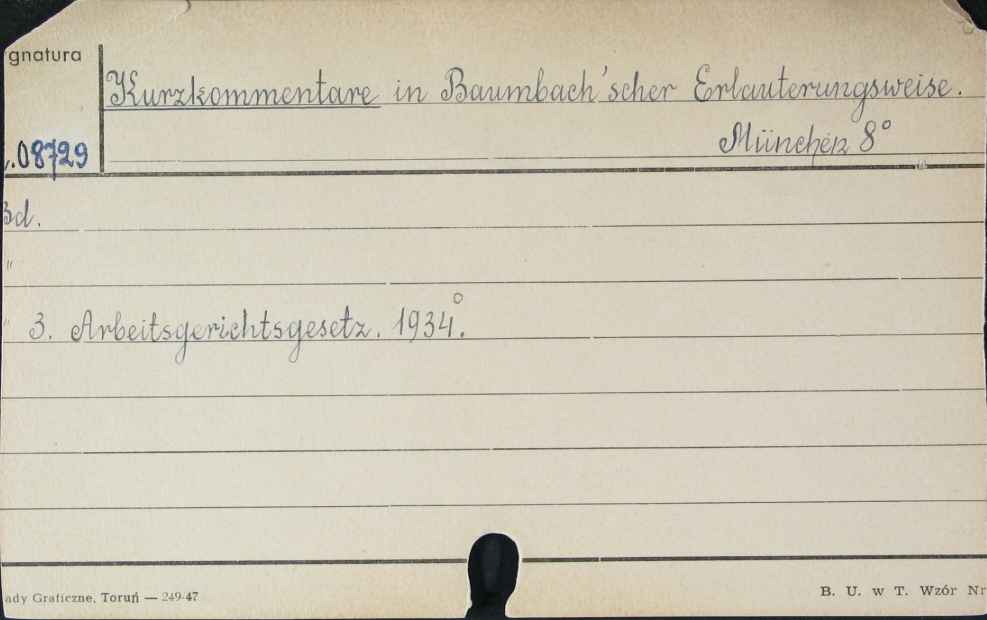 gnatura
Kurzkommentare in Baumbach'scher Erlauterungsweise.
.08729
München 8°
Bd.
"
" 3. Arbeitsgerichtsgesetz. 1934.°
ady Graficzne, Toruń — 249-47
B. U. w T. Wzór Nr